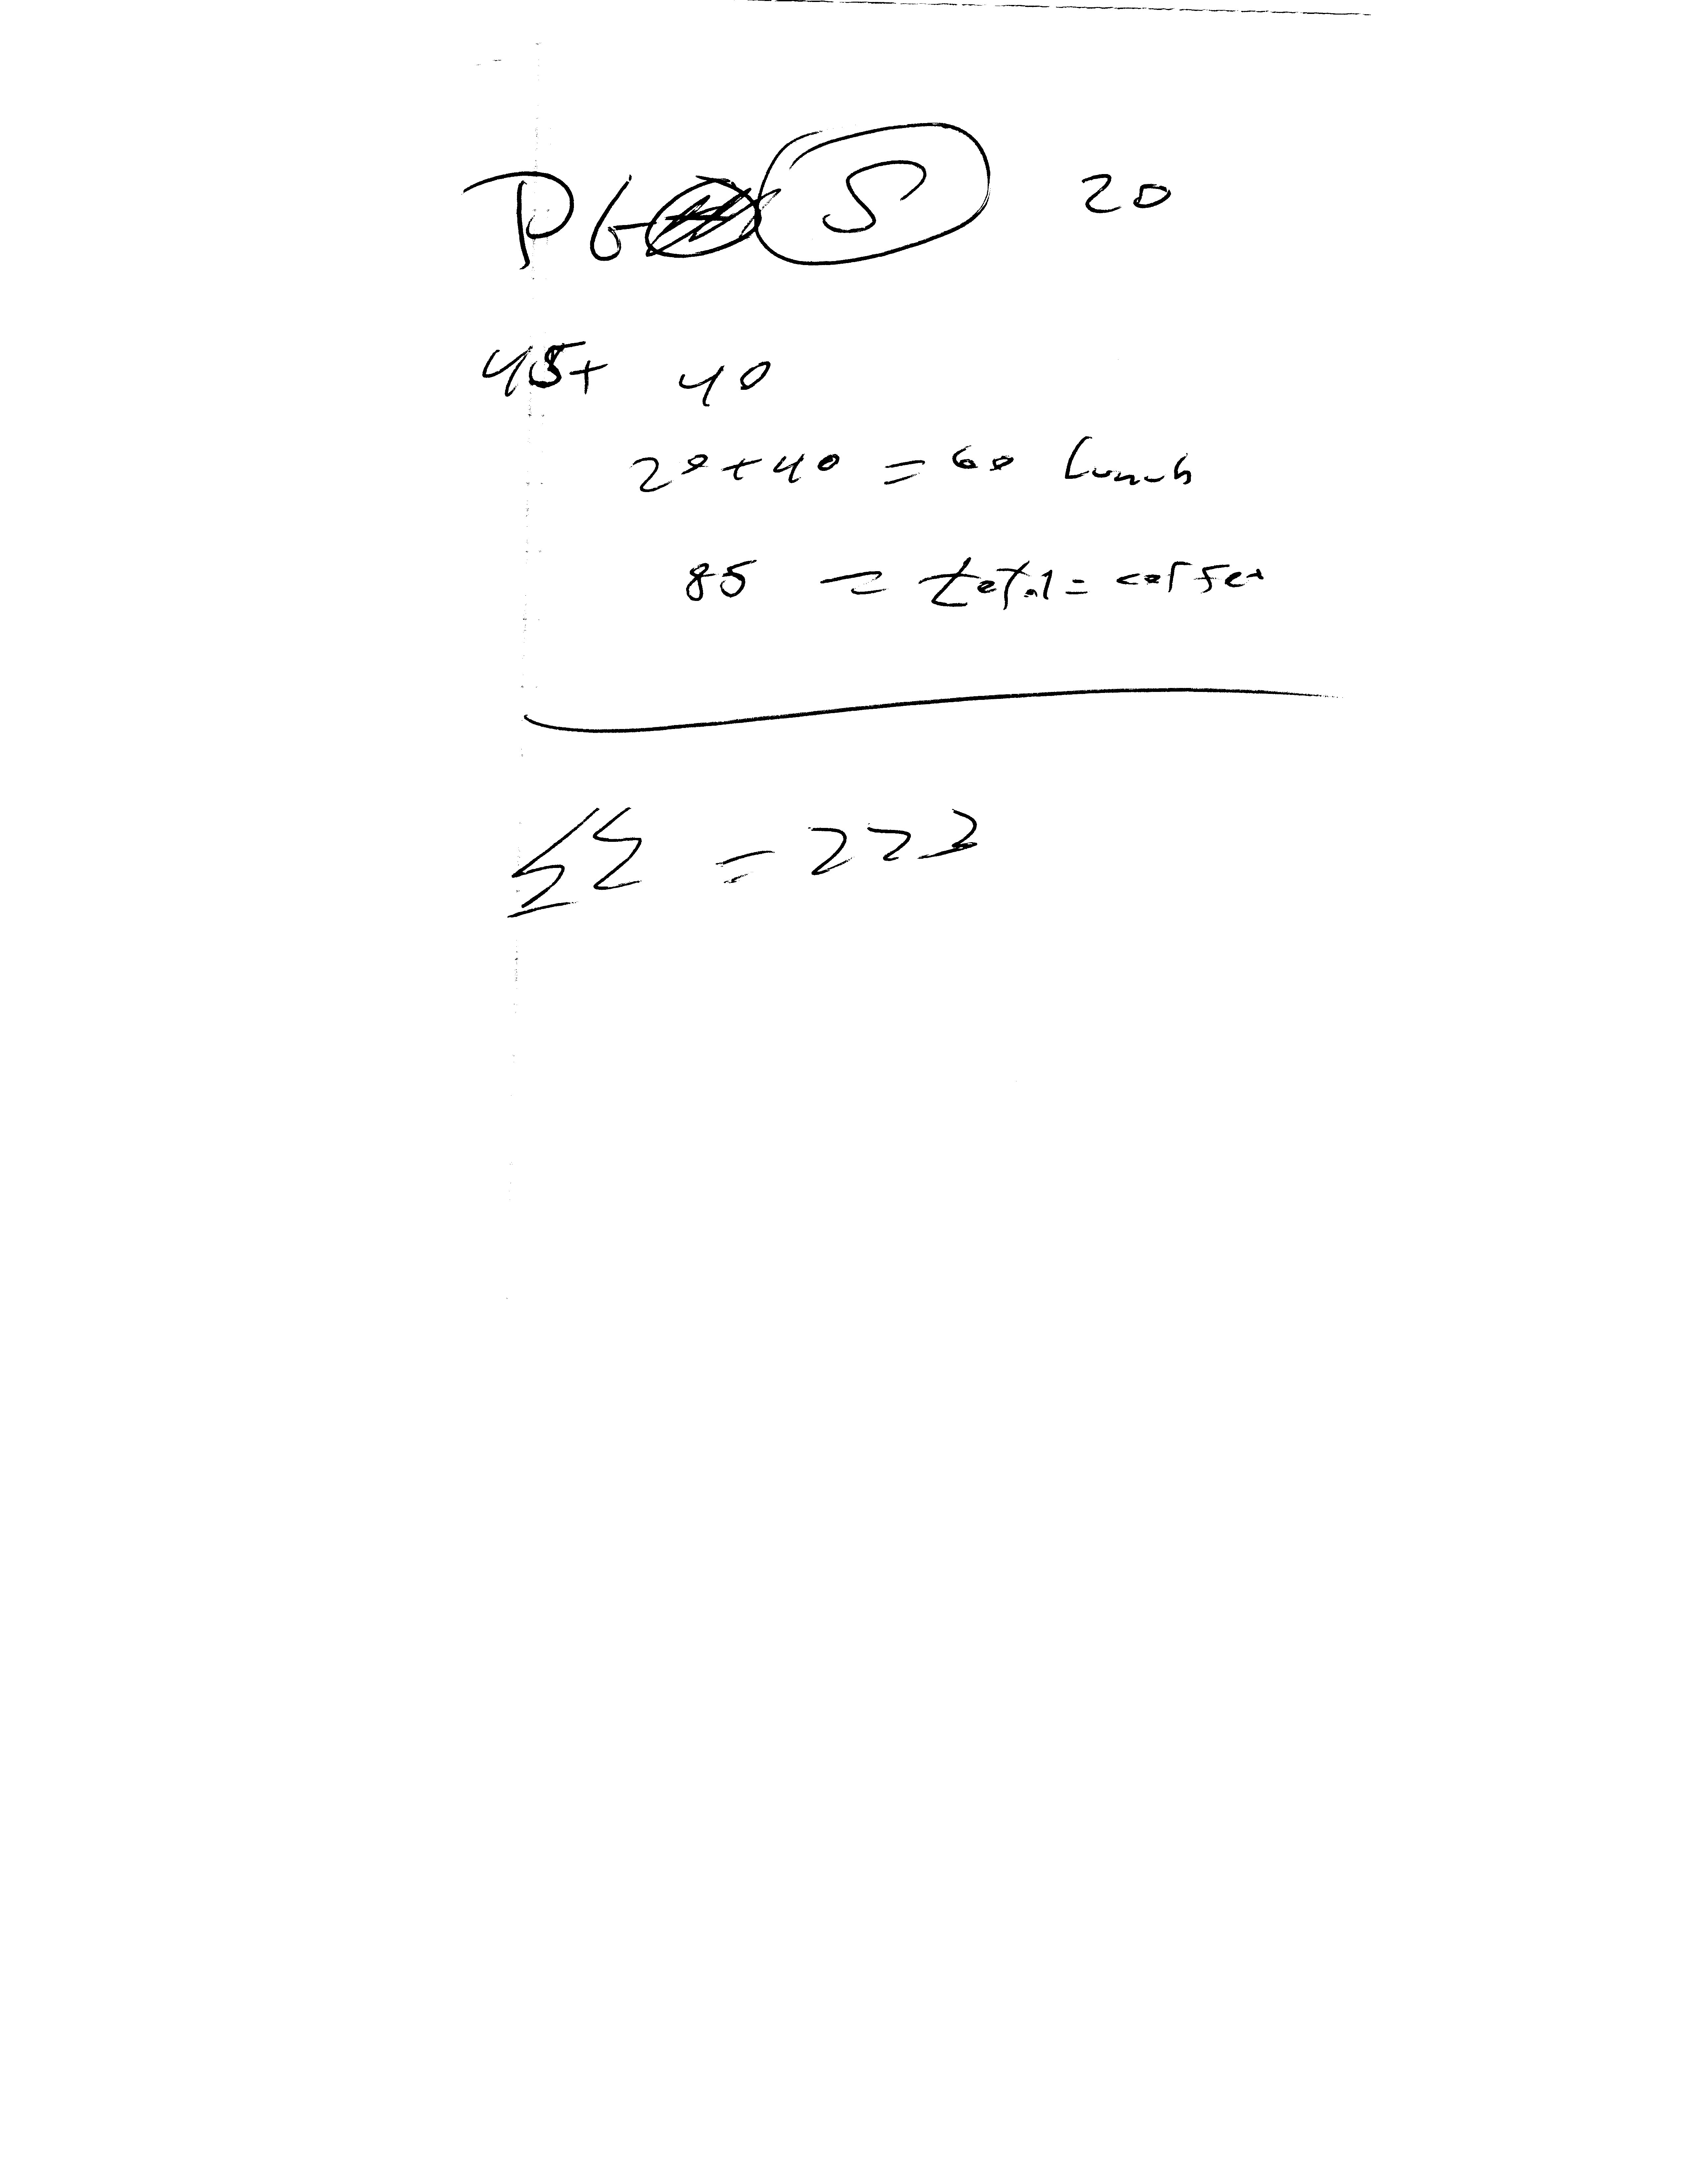 P6 S 20
45+ 40
20+40 = 60 Lunch
85 = total = coffee
= 223